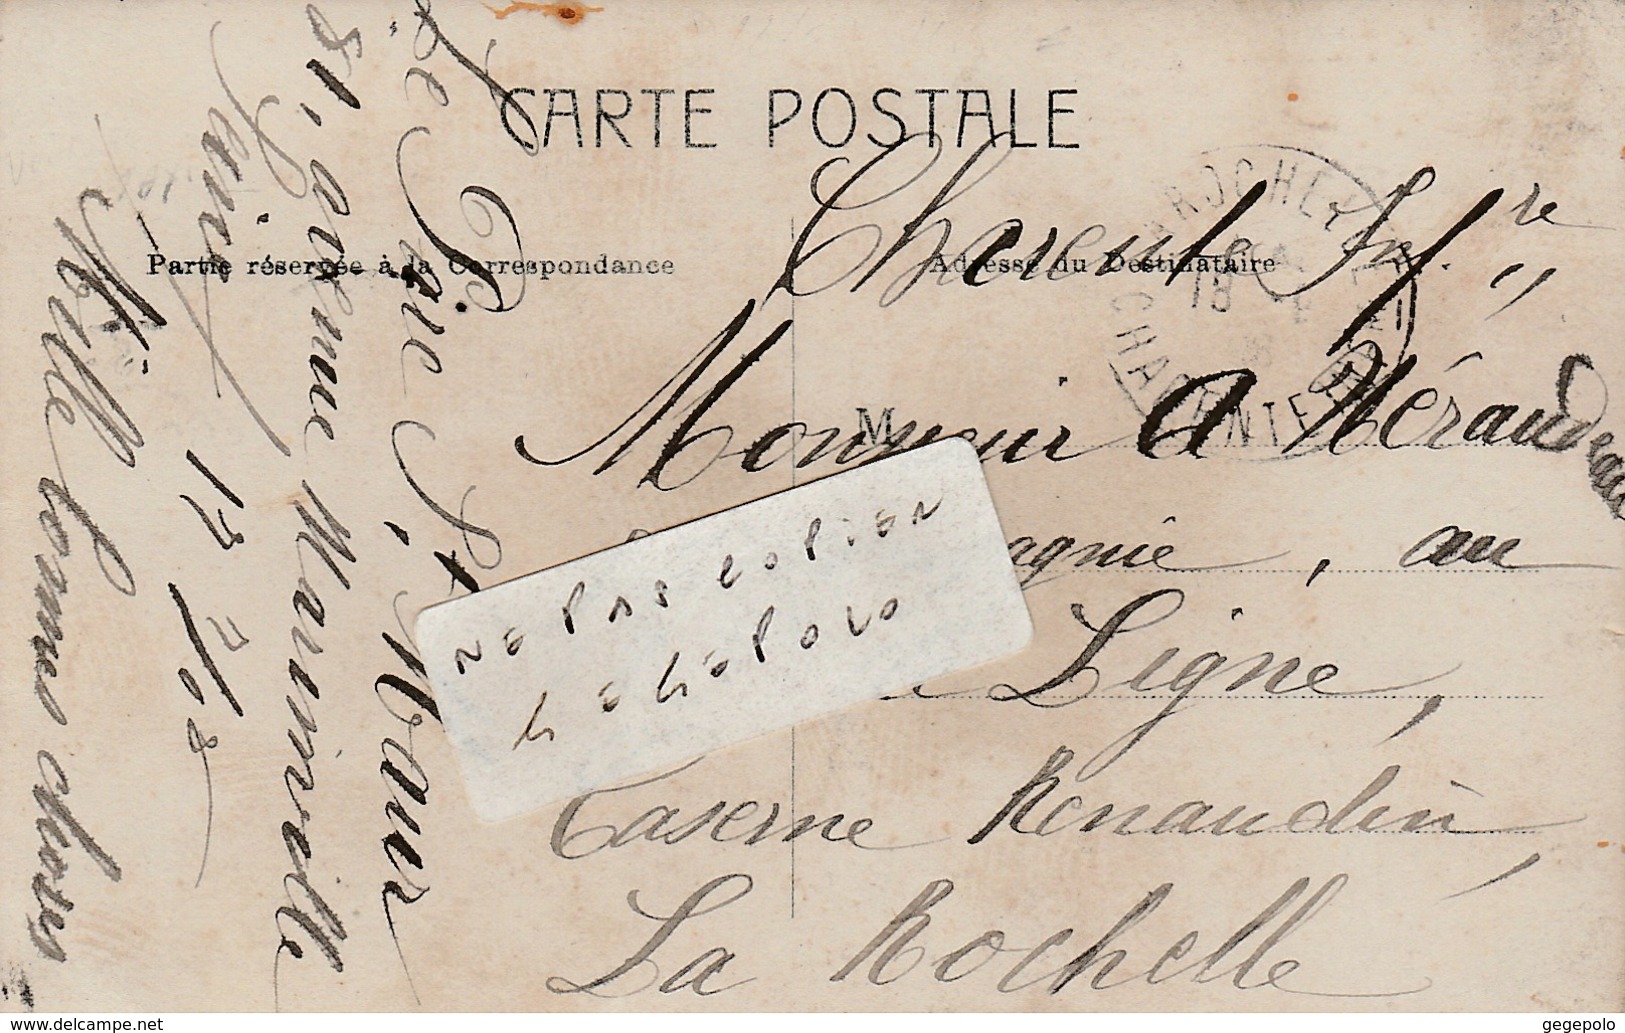 CARTE POSTALE
Partie réservée à la Correspondance
Adresse du Destinataire
M
Charente Infre
Monsieur A Héraudeau
agnie, au
Ligne,
Caserne Renaudin,
La Rochelle
NE PAS COPIER
GEGEPOLO
Le Pare St. Maur
81, avenue
Seine
17 7/08
Mille bonnes choses
LA ROCHELLE
18
CHARENTE INFRE
www.delcampe.net
gegepolo